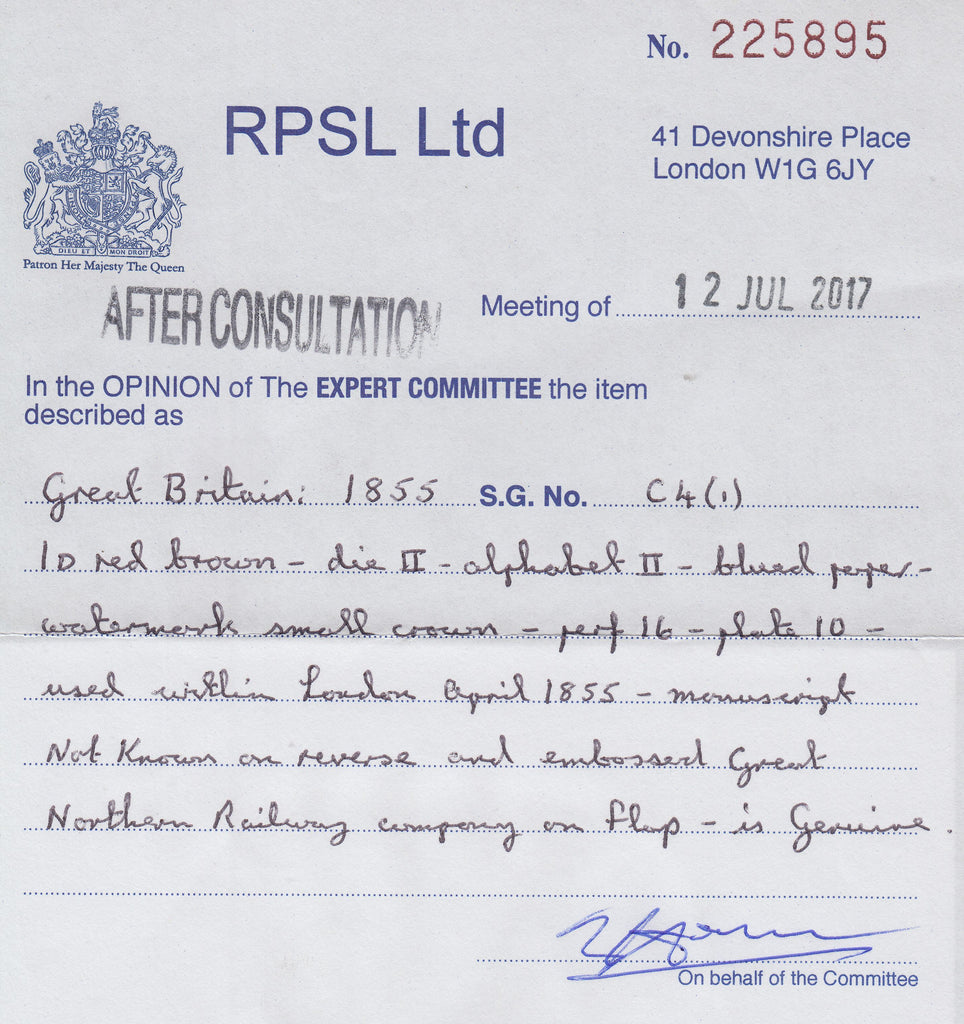 No. 225895
RPSL Ltd
41 Devonshire Place
London W1G 6JY
DIEU ET MON DROIT
Patron Her Majesty The Queen
AFTER CONSULTATION
Meeting of 12 JUL 2017
In the OPINION of The EXPERT COMMITTEE the item
described as
Great Britain: 1855 S.G. No. C4(1)
1D red brown - die II - alphabet II - blued paper -
watermark small crown - perf 16 - plate 10 -
used within London April 1855 - manuscript
Not Known on reverse and embossed Great
Northern Railway company on flap - is Genuine.
On behalf of the Committee